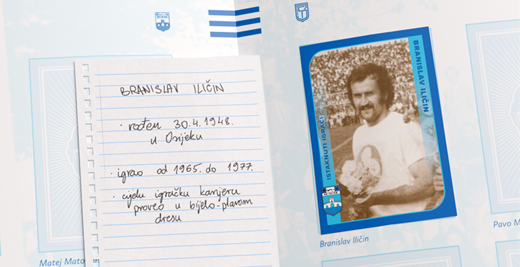 BRANISLAV ILIČIN
· rođen 30.4.1948.
u Osijeku
· igrao od 1965. do 1977.
· cijelu igračku karijeru
proveo u bijelo-plavom
dresu
Matej Mato
BRANISLAV ILIČIN
ISTAKNUTI IGRAČI
Branislav Iličin
Pavo M